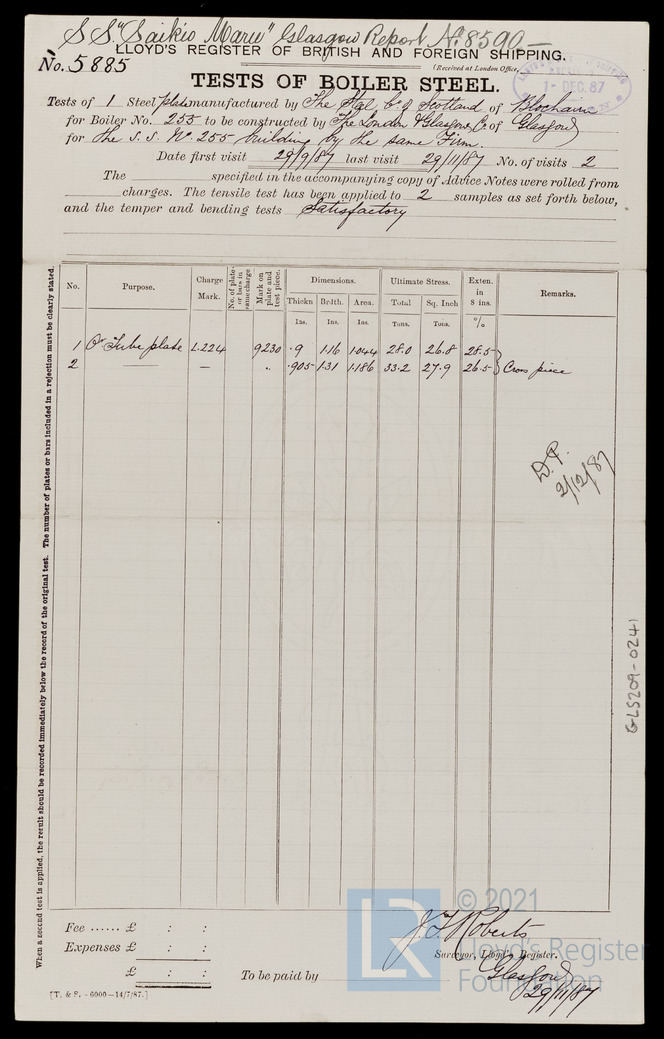 S.S. "Saikio Maru" Glasgow Report No. 8590 —
LLOYD'S REGISTER OF BRITISH AND FOREIGN SHIPPING.
No. 5885
(Received at London Office,
1- DEC. 87
TESTS OF BOILER STEEL.
Tests of 1 Steel plate manufactured by The Steel Co. of Scotland of Blochairn
for Boiler No. 255 to be constructed by The London & Glasgow Co. of Glasgow
for the S.S. No. 255 building by the same Firm.
Date first visit 29/9/87 last visit 29/11/87 No. of visits 2
The specified in the accompanying copy of Advice Notes were rolled from
charges. The tensile test has been applied to 2 samples as set forth below,
and the temper and bending tests Satisfactory
No. Purpose. Charge Mark. No. of plates or bars in same charge Mark on plate and test piece. Dimensions. Ultimate Stress. Exten. in 8 ins. Remarks.
Thickn Br'dth. Area. Total Sq. Inch
Ins. Ins. Ins. Tons. Tons. %
1 Or Tube plate L.224 9230 .9 1.16 1.044 28.0 26.8 28.5
2 — — " .905 1.31 1.186 33.2 27.9 26.5 Cross piece
D.P.
2/12/87
GLS209-0241
When a second test is applied, the result should be recorded immediately below the record of the original test. The number of plates or bars included in a rejection must be clearly stated.
Fee ...... £ : :
Expenses £ : :
£ : :
To be paid by
J. F. Roberts
Surveyor, Lloyd's Register.
Glasgow
29/11/87
[T. & S. - 6000—14/7/87.]
LR
© 2021
Lloyd's Register
Foundation